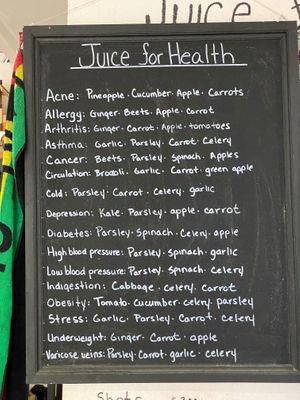 JUICE
Juice for Health
Acne: Pineapple · Cucumber · Apple · Carrots
Allergy: Ginger · Beets · Apple · Carrot
Arthritis: Ginger · Carrot · Apple · tomatoes
Asthma: Garlic · Parsley · Carrot · Celery
Cancer: Beets · Parsley · Spinach · Apples
Circulation: Brocoli · Garlic · Carrot · green apple
Cold: Parsley · Carrot · Celery · garlic
Depression: Kale · Parsley · apple · carrot
Diabetes: Parsley · Spinach · Celery · apple
High blood pressure: Parsley · Spinach · garlic
Low blood pressure: Parsley · Spinach · Celery
Indigestion: Cabbage · Celery · Carrot
Obesity: Tomato · Cucumber · celery · parsley
Stress: Garlic · Parsley · Carrot · Celery
Underweight: Ginger · Carrot · apple
Varicose veins: Parsley · Carrot · garlic · celery
Shots